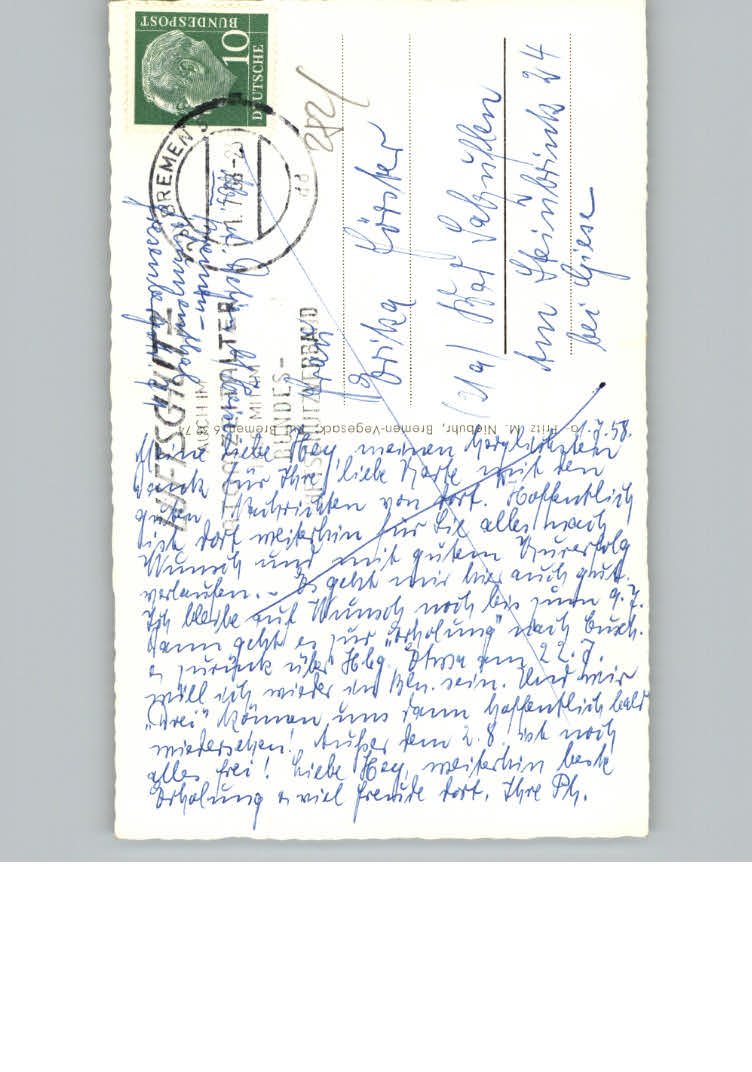 1.7.58.
Meine liebe Hey, meinen herzlichsten
Dank für Ihre liebe Karte mit den
guten Nachrichten von dort. Hoffentlich
ist dort weiterhin für Sie alles nach
Wunsch und mit gutem Kurerfolg
verlaufen. – Es geht mir hier auch gut.
Ich bleibe auf Wunsch noch bis zum 9.7.
Dann geht es zur "Erholung" nach
zurück über Hbg. Etwa am 22.7.
will ich wieder in Bln. sein. Und wir
"drei" können uns dann hoffentlich bald
wiedersehen! Außer dem 2.8. ist noch
alles frei! Liebe Hey, weiterhin beste
Erholung & viel Freude dort. Ihre Ph.
Fritz M. Niebuhr, Bremen-Vegesack, Ruf Bremen 6 74
DEUTSCHE
BUNDESPOST
10
BREMEN
1.7.58
LUFTSCHUTZ
AUCH IM
ATOMZEITALTER
BUNDES-
LUFTSCHUTZVERBAND
282/
Frau
Erika Förster
(21a) Bad Salzuflen
Am Steinbrink 24
bei Giese